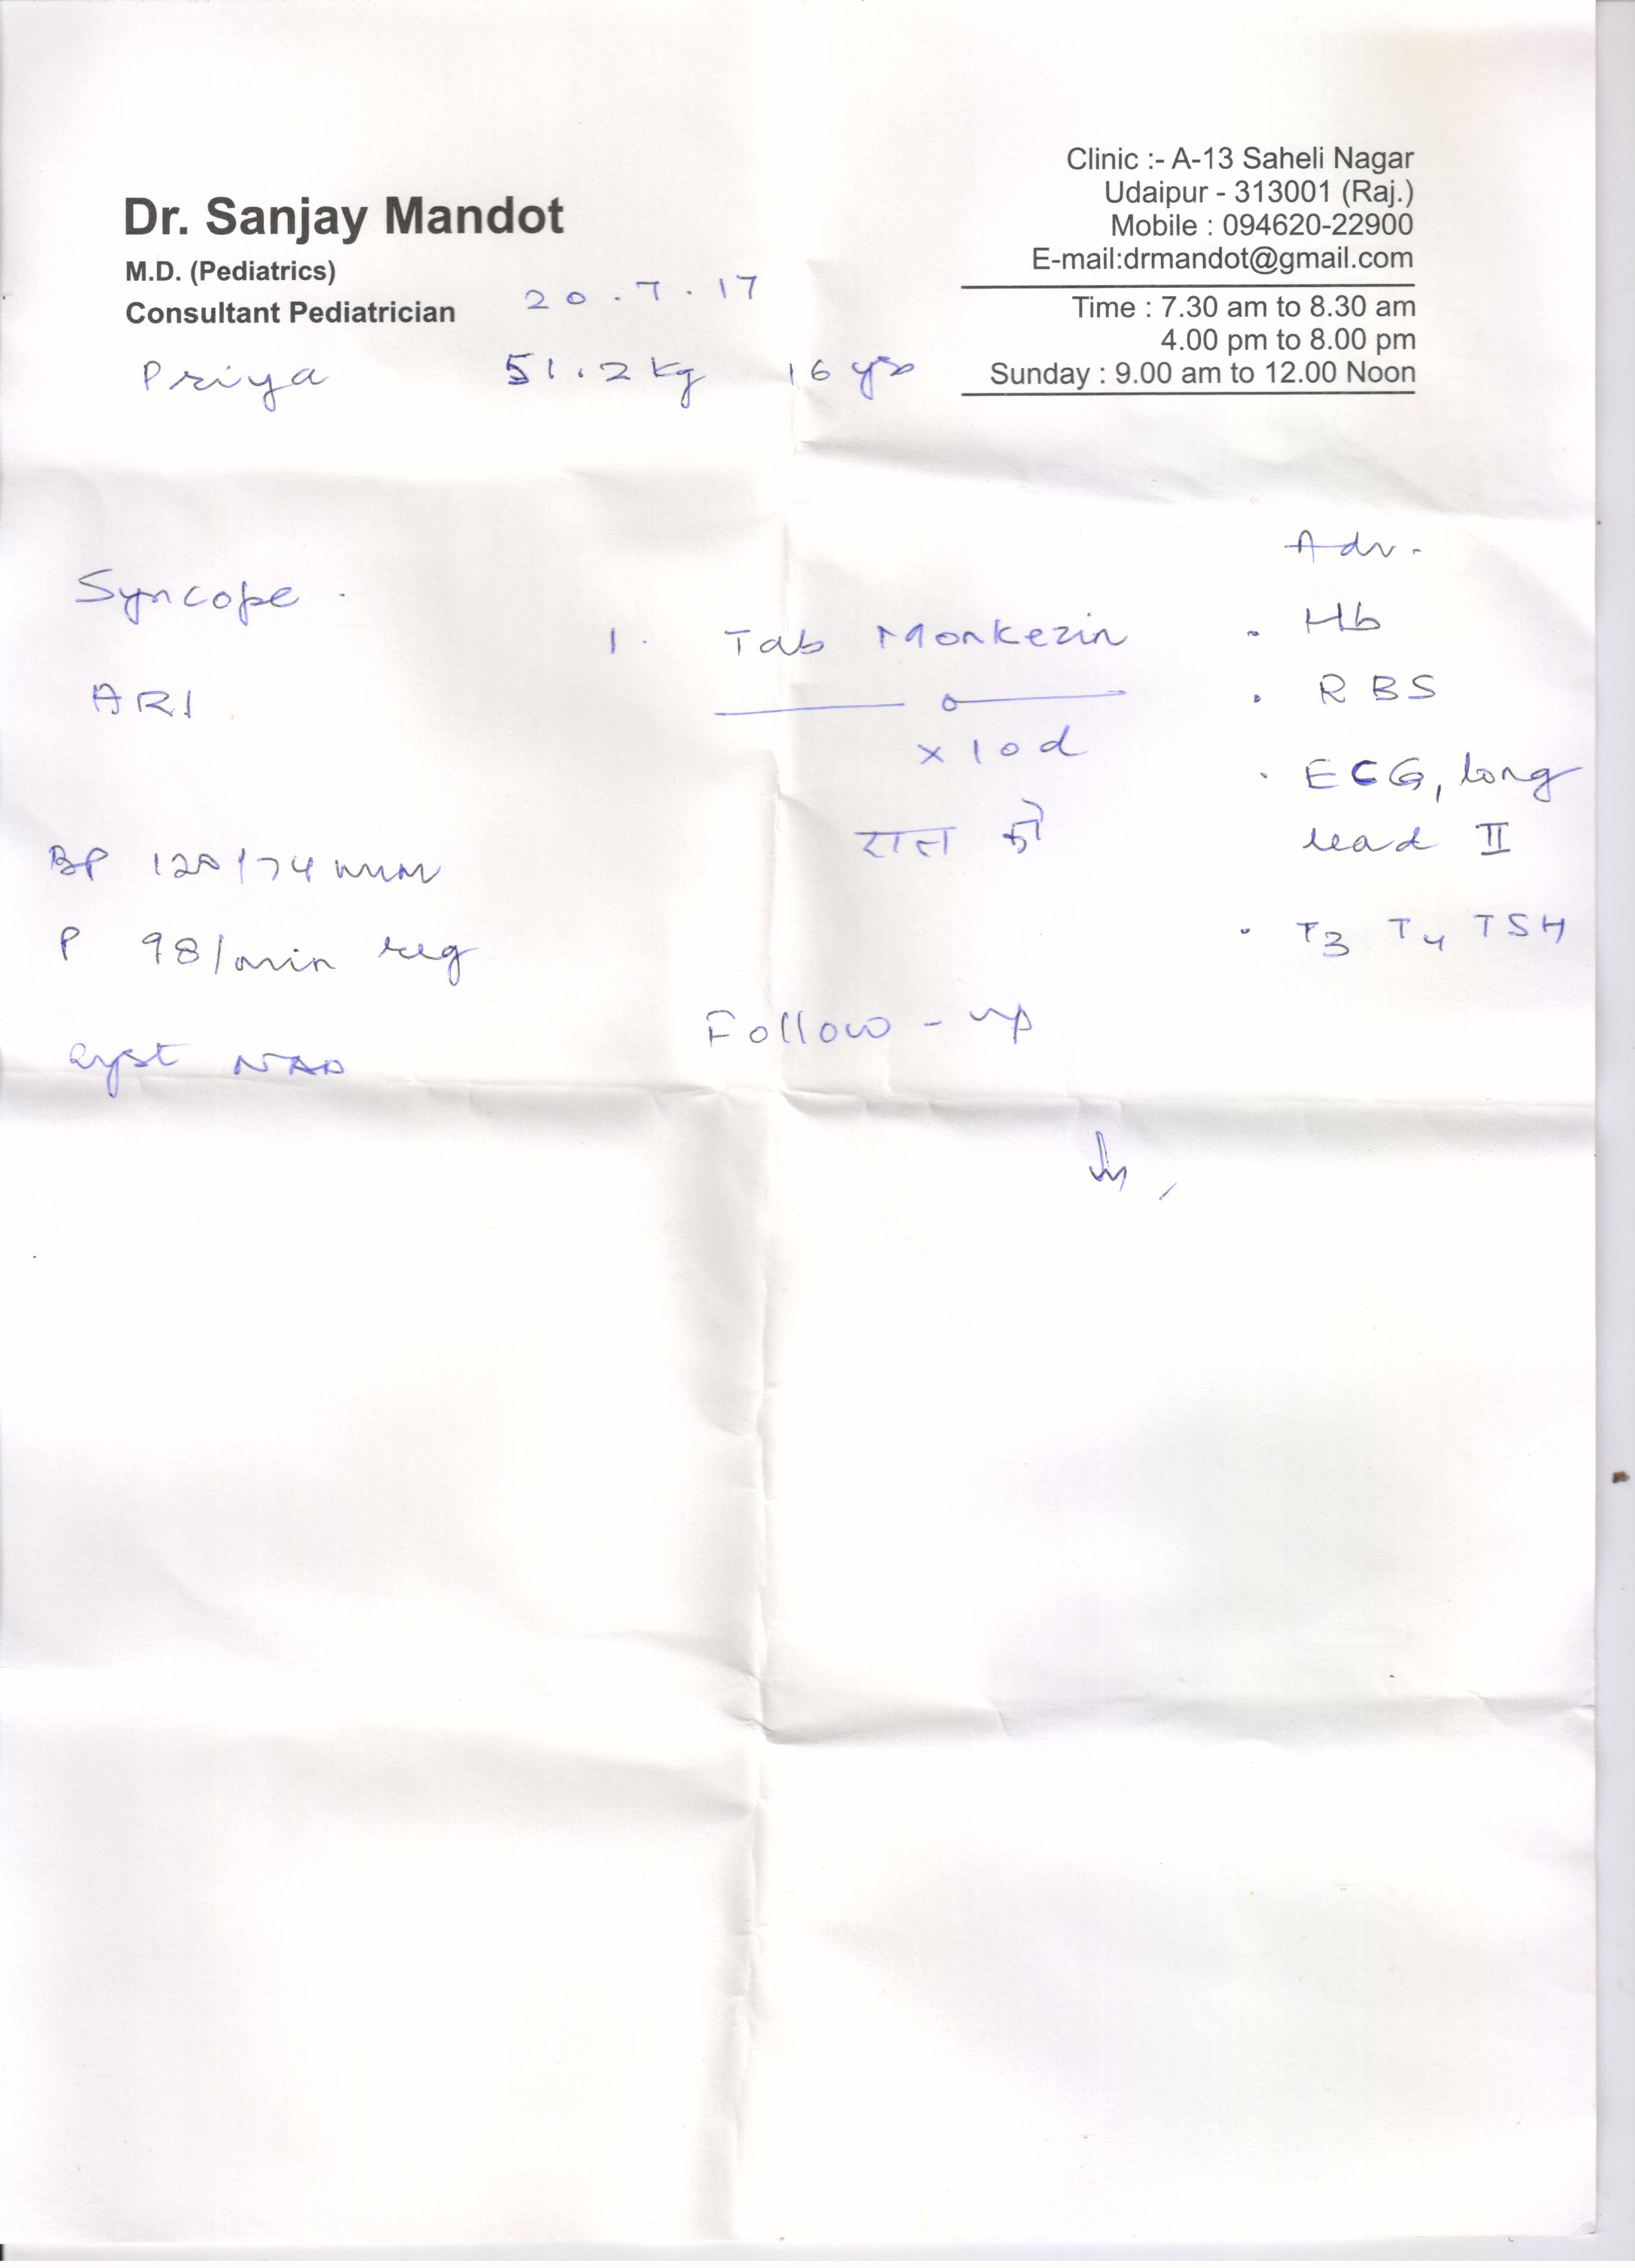 Clinic :- A-13 Saheli Nagar
Udaipur - 313001 (Raj.)
Mobile : 094620-22900
E-mail:drmandot@gmail.com
Time : 7.30 am to 8.30 am
4.00 pm to 8.00 pm
Sunday : 9.00 am to 12.00 Noon
Dr. Sanjay Mandot
M.D. (Pediatrics)
Consultant Pediatrician
20.7.17
Priya 51.2 kg 16 yrs
Syncope.
ARI
BP 120/74 mm
P 98/min reg
syst NAD
1. Tab Monkezin
x 10 d
रात को
Follow-up
Adv.
. Hb
. RBS
. ECG, long
lead II
. T3 T4 TSH